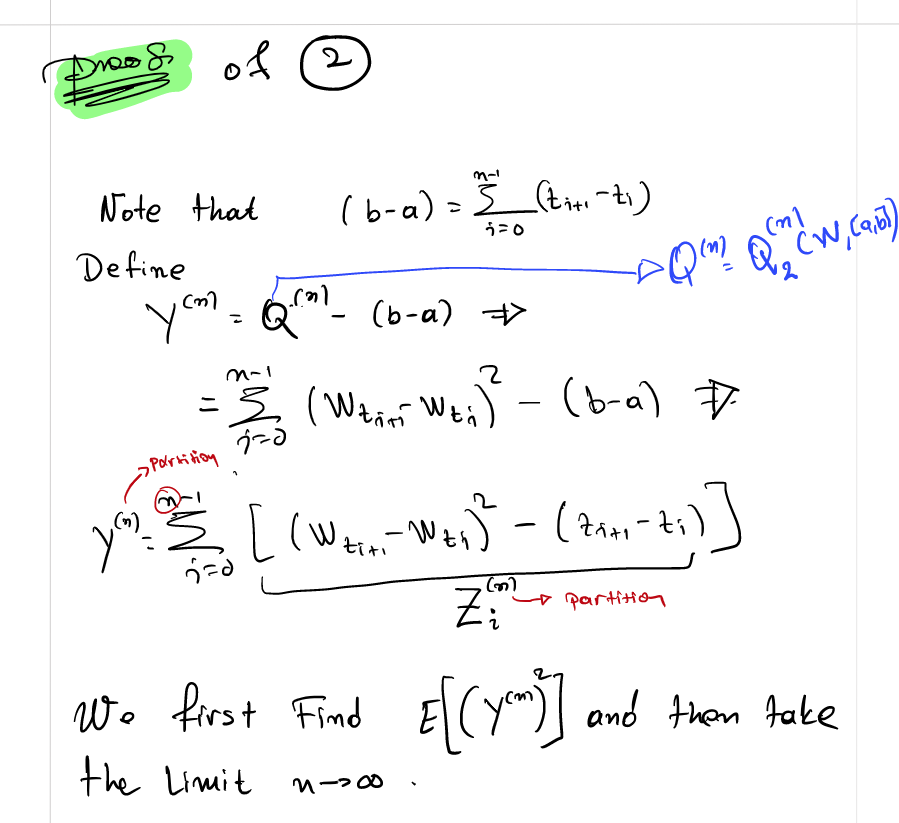 Proof of ②
Note that (b-a) = \sum_{i=0}^{n-1} (t_{i+1} - t_i)
Define Q^{(n)} = Q_2^{(n)}(W,[a,b])
Y^{(n)} = Q^{(n)} - (b-a) ⇒
= \sum_{i=0}^{n-1} (W_{t_{i+1}} - W_{t_i})^2 - (b-a) ⇒
partition
Y^{(n)} = \sum_{i=0}^{n-1} [(W_{t_{i+1}} - W_{t_i})^2 - (t_{i+1} - t_i)]
Z_i^{(n)} → partition
We first Find E[(Y^{(n)})^2] and then take
the Limit n→∞.